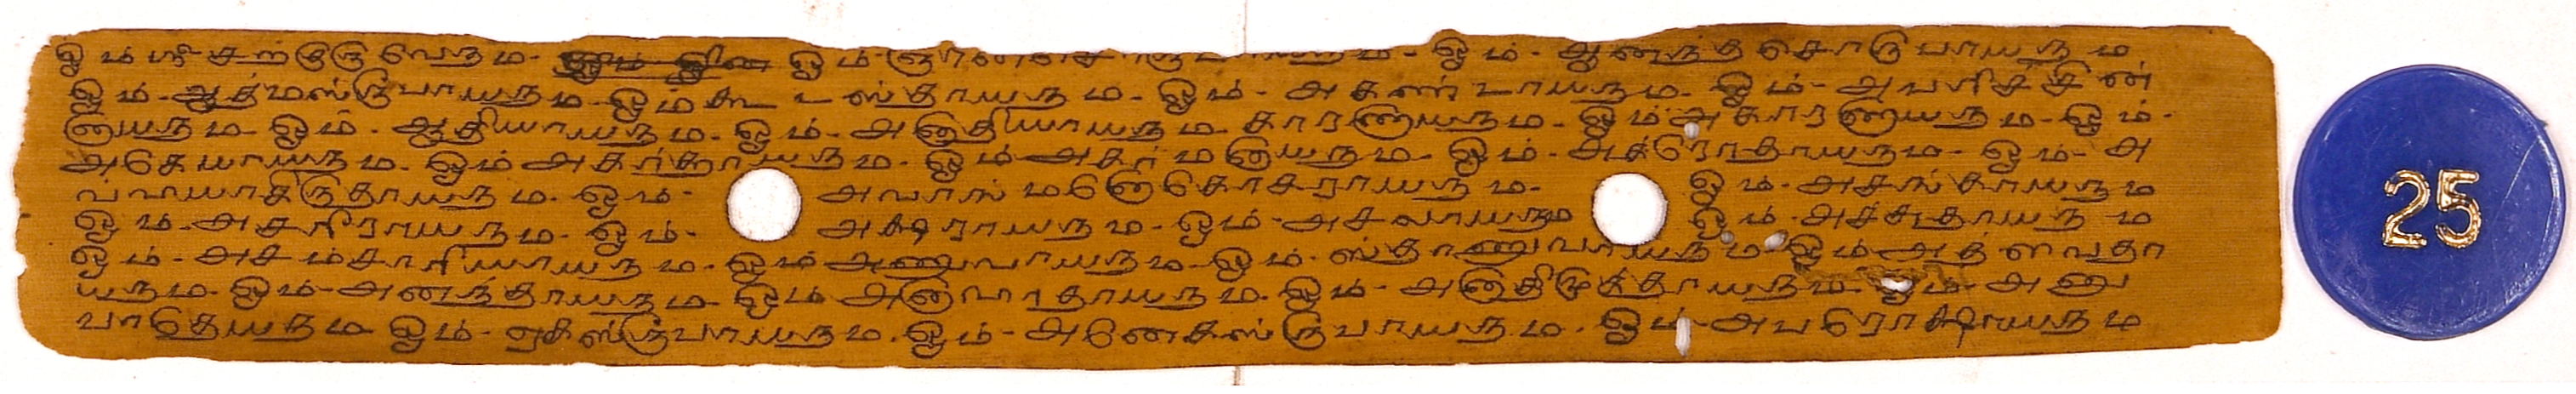 ஓம் ஸ்ரீ சற்குருவேநம- ஓம்- ஓம்- ஆனந்தசொரூபாயநம
ஓம்-ஆத்மஸ்ரூபாயநம-ஓம்கூடஸ்தாயநம-ஓம்-அகண்டாயநம-ஓம்-அபரிச்சின்
னாயநம-ஓம்-ஆதியாயநம-ஓம்-அனாதியாயநம-காரணாயநம-ஓம்அகாரணாயநம-ஓம்-
அகேயாயநம-ஓம்அகர்த்தாயநம-ஓம்அகர்மனாயநம-ஓம்-அக்ரோதாயநம-ஓம்-அ
வ்வயாகிருதாயநம-ஓம்- அவாங்மனோகோசராயநம- ஓம்-அசங்காயநம
ஓம்-அசரீராயநம-ஓம்- அக்ஷராயநம-ஓம்-அசலாயநம ஓம்-அச்சுதாயநம
ஓம்-அசம்சாரியாயநம-ஓம்அணுவாயநம-ஓம்-ஸ்தாணுவாயநம-ஓம்அத்வைதா
யநம-ஓம்-அனந்தாயநம-ஓம்அனாவரதாயநம-ஓம்-அனாதிமுத்தாயநம-ஓம்-அனு
பாதேயநம-ஓம்-ஏகஸ்ரூபாயநம-ஓம்-அனேகஸ்ரூபாயநம-ஓம்-அபரோக்ஷாயநம
25